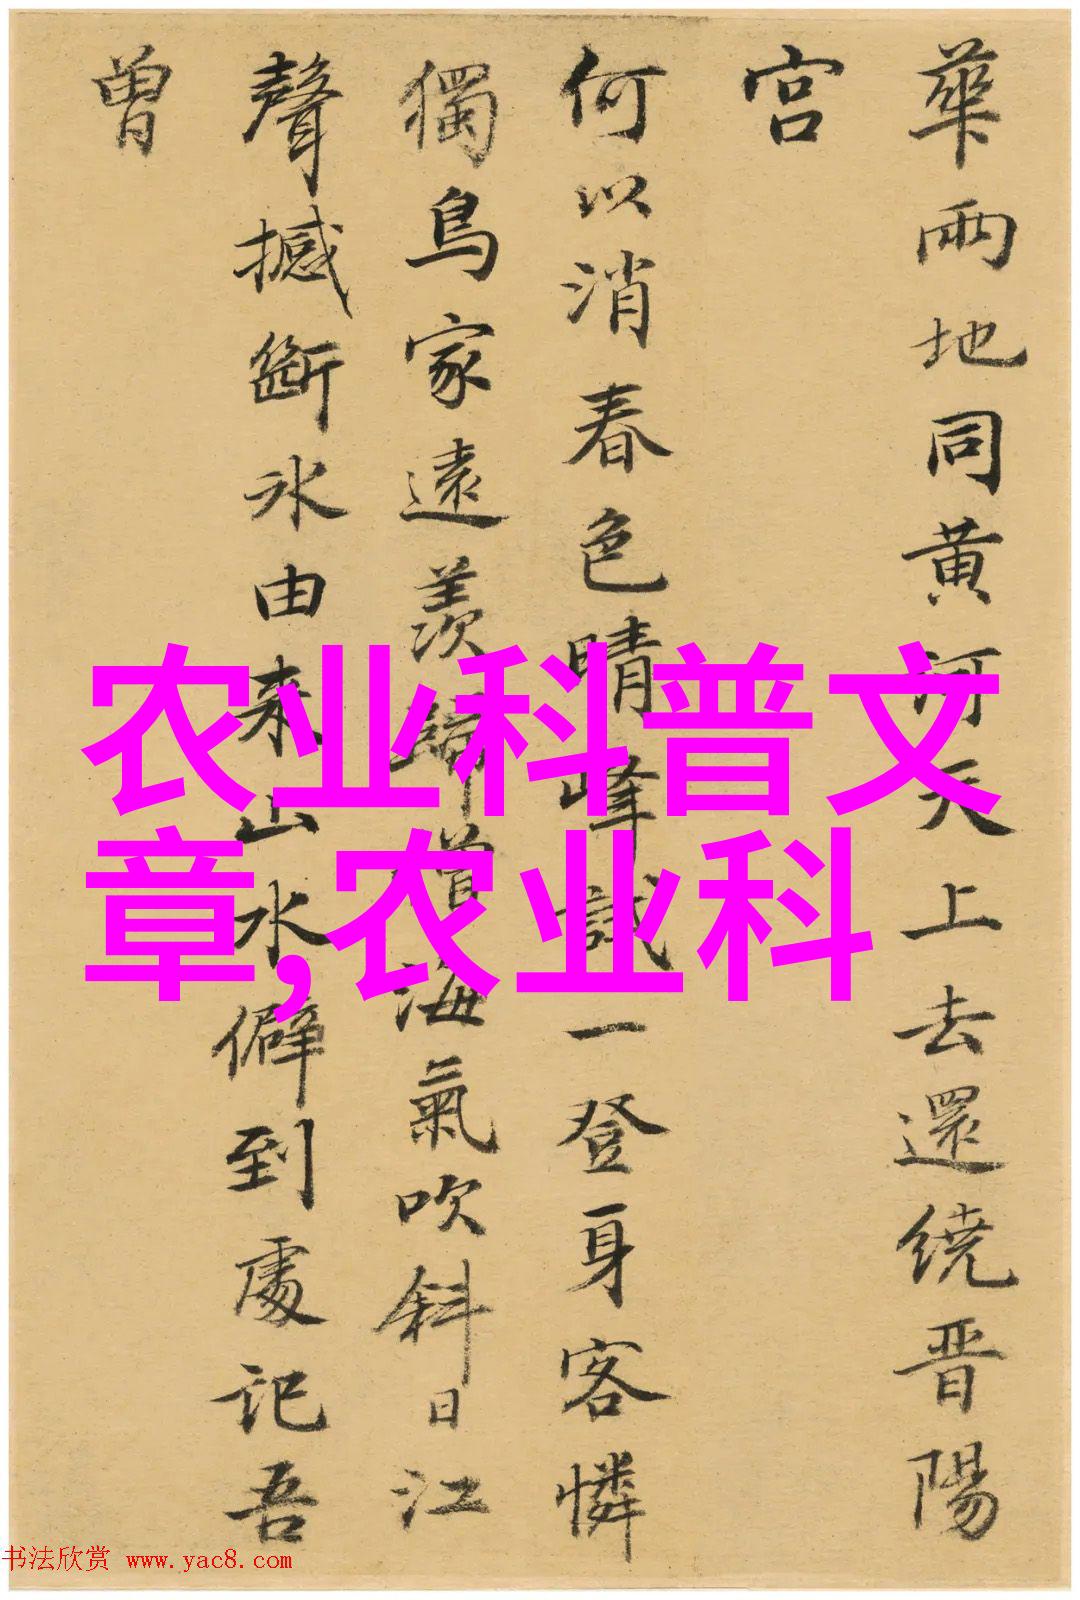 華兩地同黄河天上去還繞晋陽
宫
何以消春色晴峰試一登身客憐
獨鳥家遠羨歸曽海氣吹斜日江
聲撼斷冰由来山水僻到處記吾
曽
农业科普文
章,农业科
书法欣赏 www.yac8.com